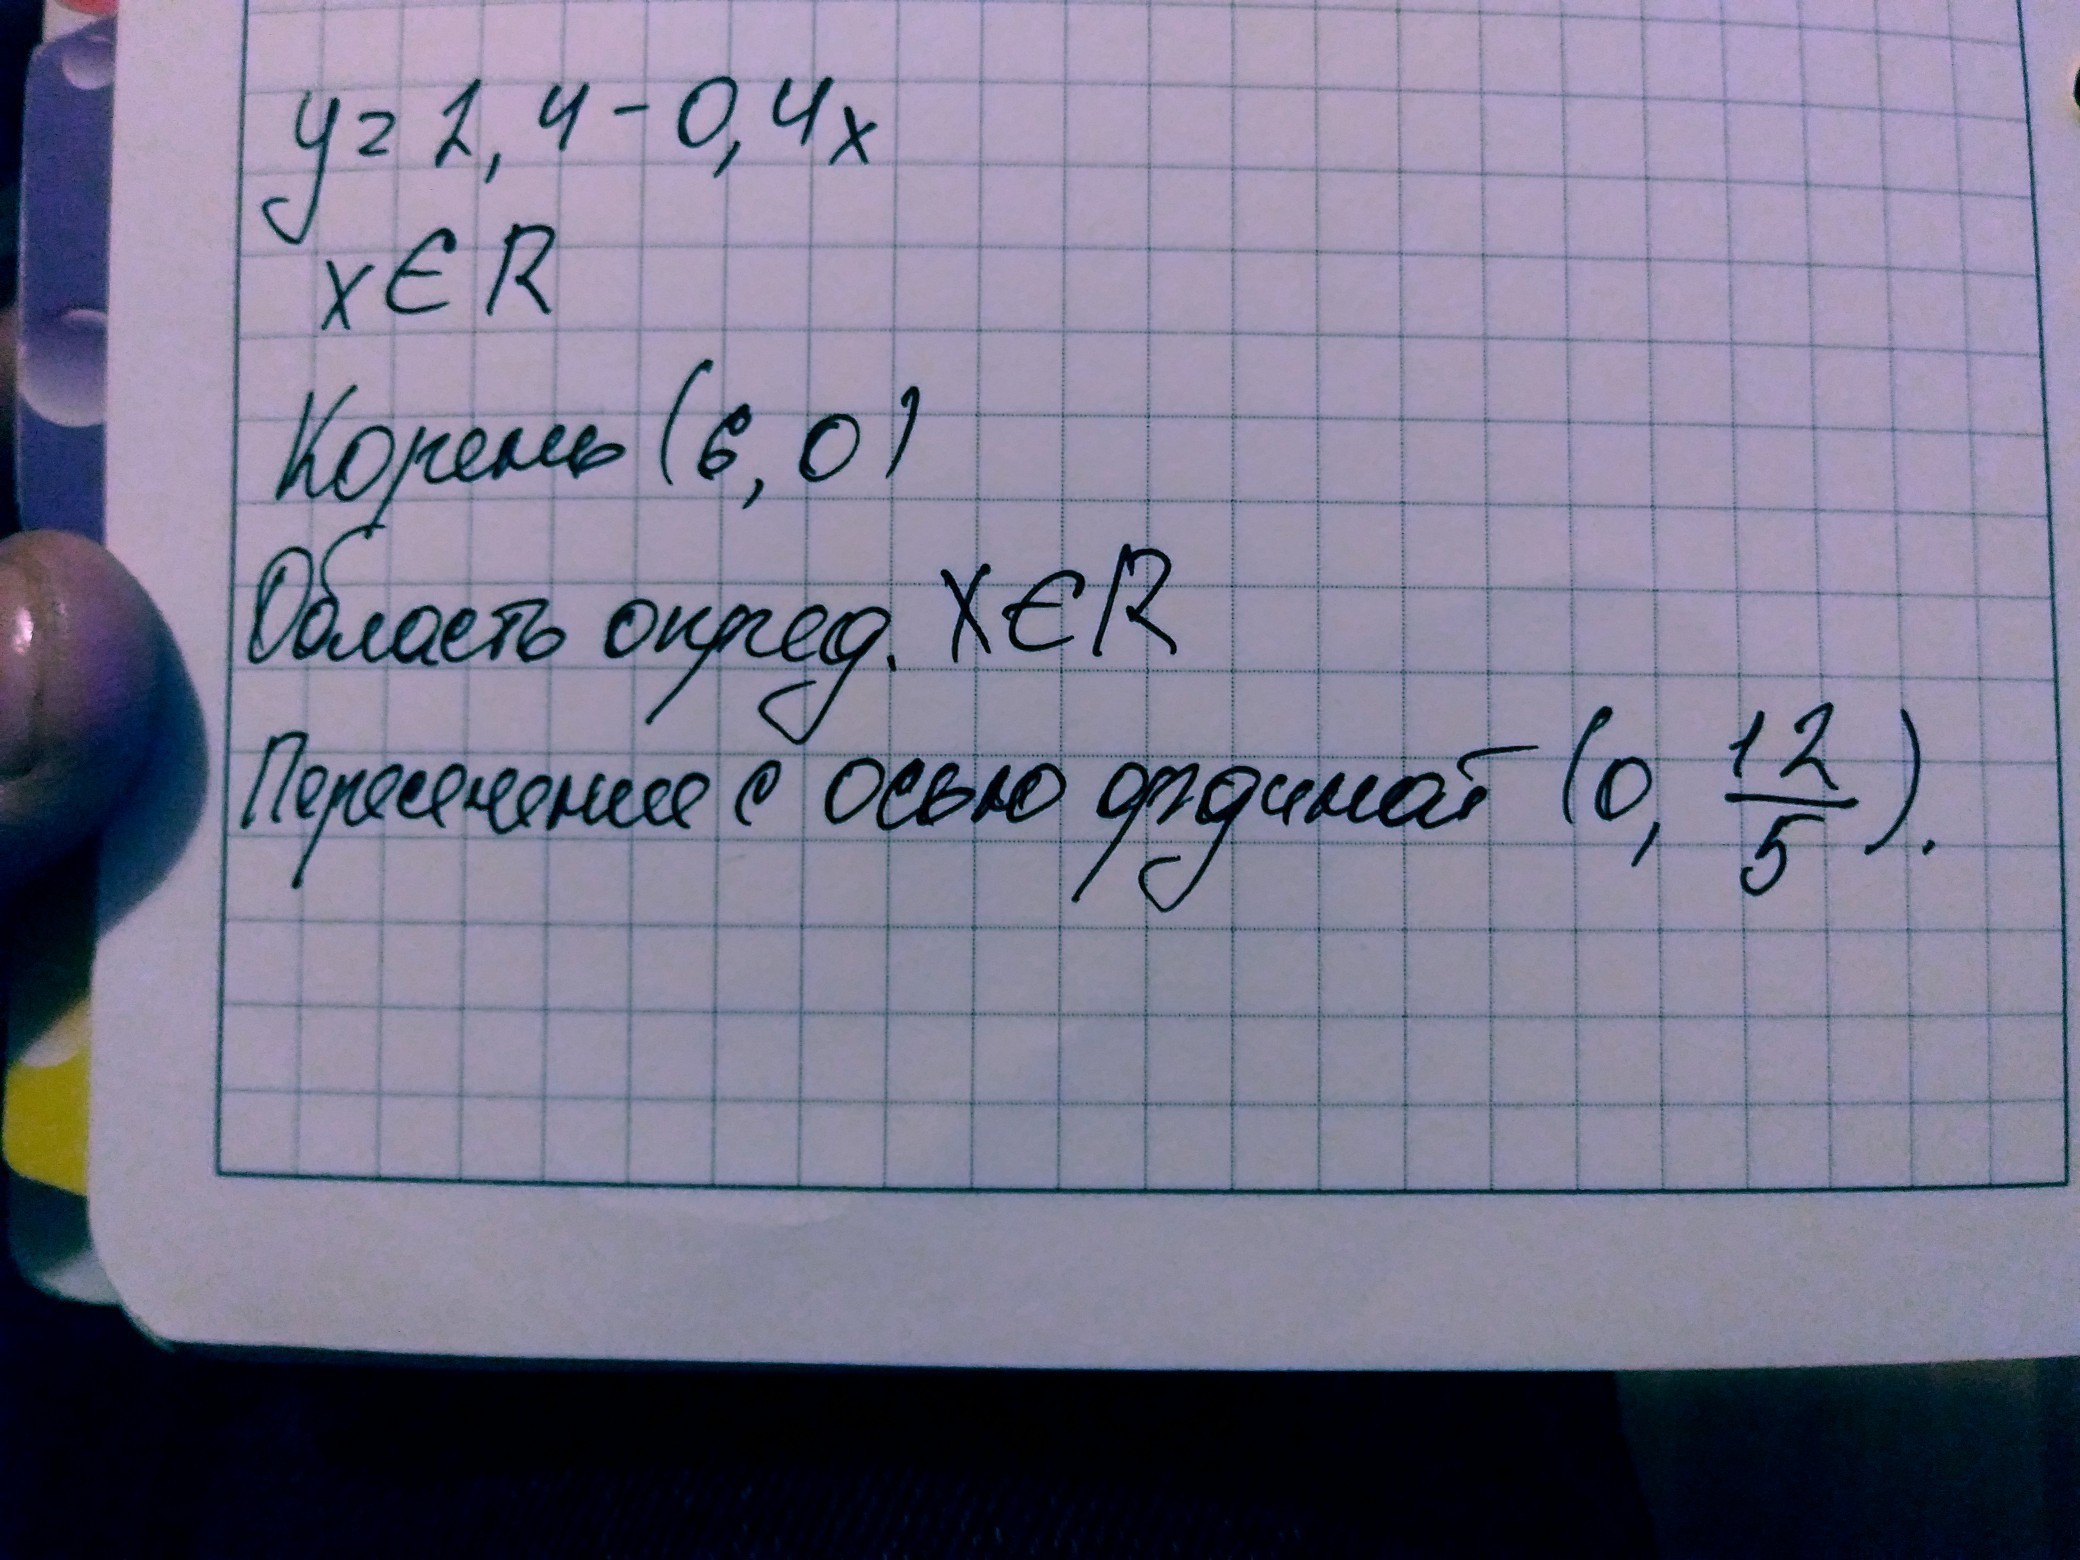 y = 2,4 - 0,4x
x ∈ R
Корень (6, 0)
Область опред. X ∈ R
Пересечение с осью ординат (0, 12/5).